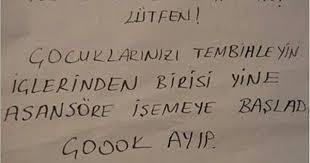 LÜTFEN!
ÇOCUKLARINIZI TEMBİHLEYİN
İÇLERİNDEN BİRİSİ YİNE
ASANSÖRE İŞEMEYE BAŞLAD
ÇOOOK AYIP.